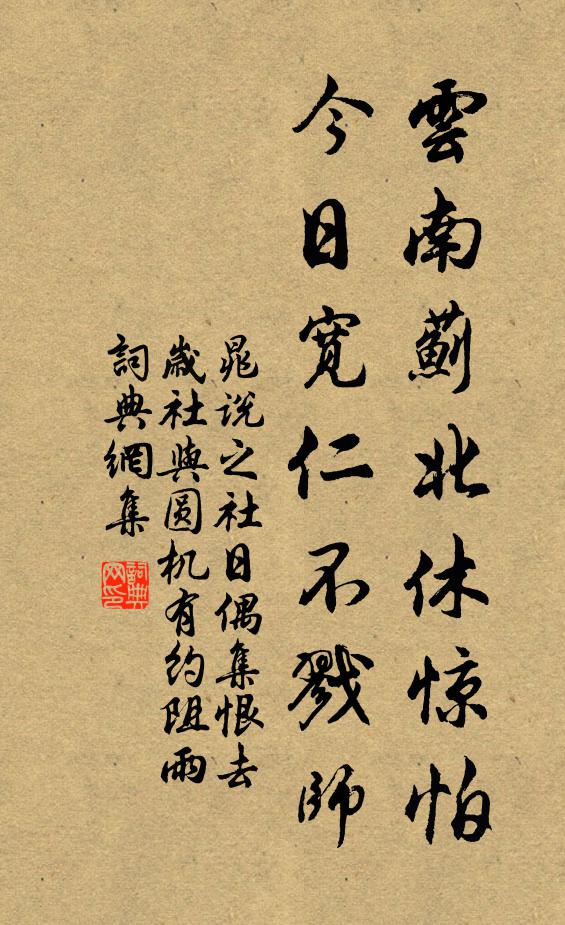 雲南薊北休惊怕
今日寛仁不戮師
晁说之社日偶集恨去
歲社與圆机有约阻雨
詞典網集
詞典网印